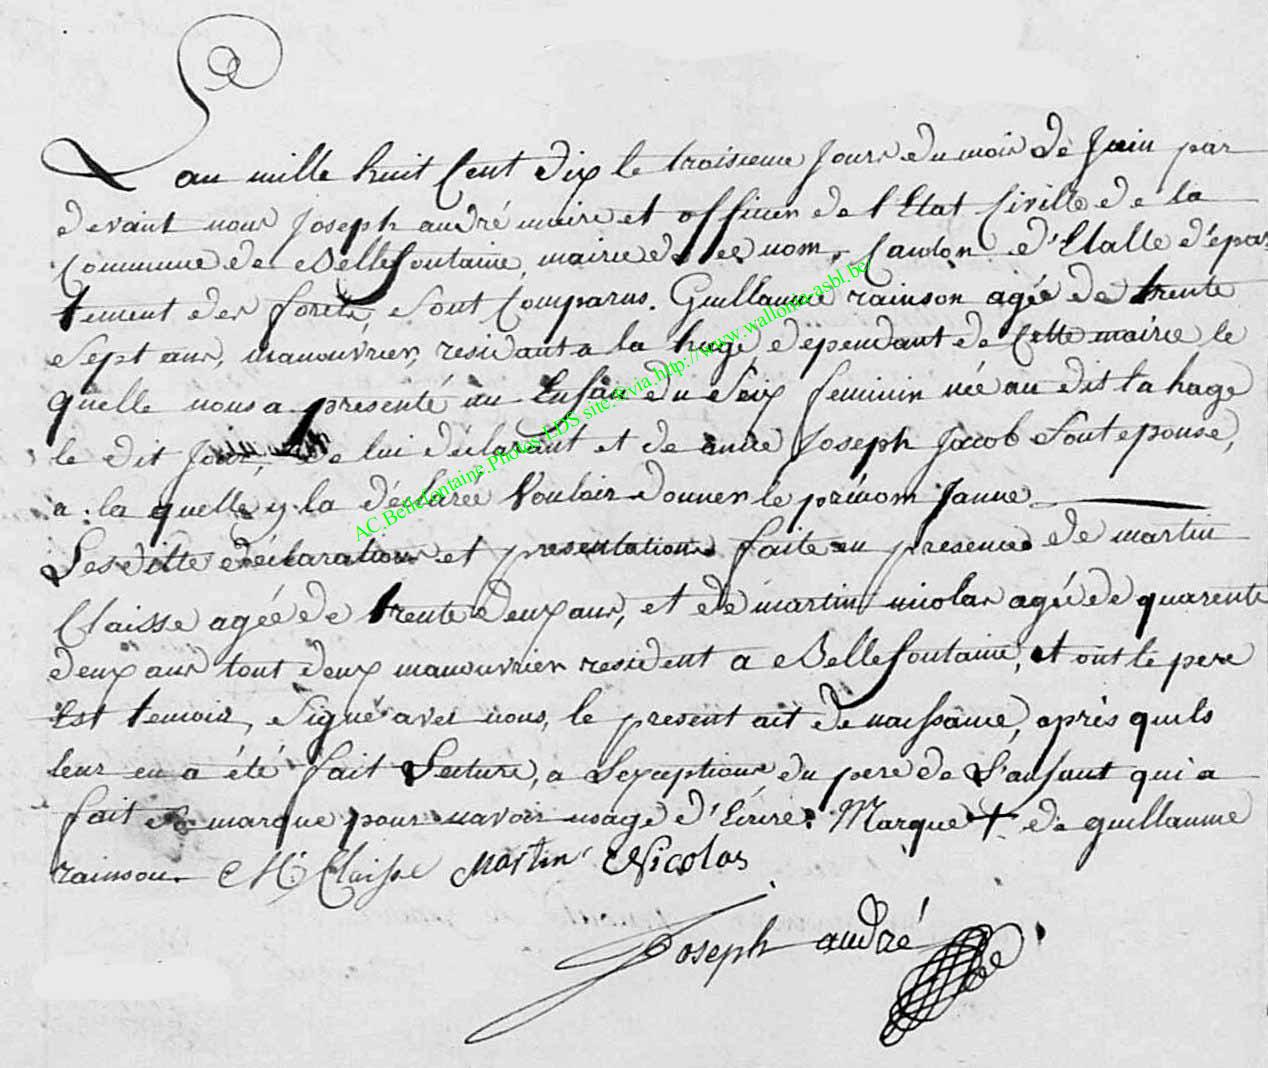 L'an mille huit Cent dix le troisieme Jours du mois de Juin par
devant nous Joseph andré maire et officier de l'Etat Civille de la
Commune de Bellefontaine, mairie de ce nom, Canton d'Etalle d'épar
tement des forets, Sont Comparus. Guillaume rainson agée de trente
Sept ans, manouvrier, residant a la hage dependant de Cette mairie le
quelle nous a presenté un Enfan du Seix feminin née au dit la hage
le dit Jour, de lui déclarant et de Joseph Jacob Sont epouse,
a la quelle y la déclarée Vouloir donner le prénom Janne
Les ditte declaration et presentation faite en presence de martin
Claisse agée de trente deux ans, et de martin nicolas agée de quarente
deux ans tout deux manouvrier resident a Bellefontaine, et ont le pere
Est temoin, Signé avec nous, le present ait de naissance, après quils
leur en a été fait Lecture, a L'exception du pere de L'anfant qui a
fait Sa marque pour navoir usage d'Ecrire. Marque + de guillaume
rainson. M Claisse Martin Nicolas
Joseph andré
AC.Bellefontaine.Photos LDS site. via.http://www.wallonia-asbl.be/